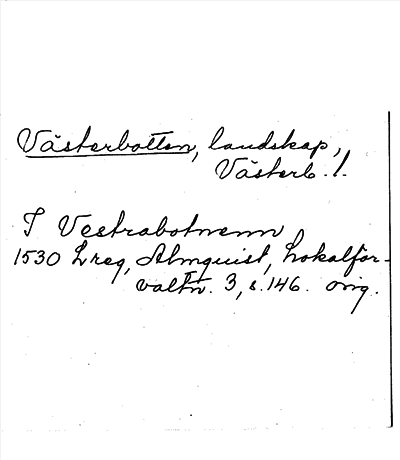 Västerbotten, landskap,
Västerb. l.
I Vestrabotnenn
1530 Lreg, Almquist, Lokalför-
valtn. 3, s. 146. orig.